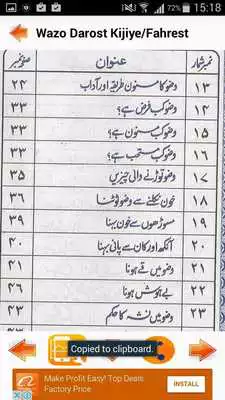 72% 15:18
Wazo Darost Kijiye/Fahrest
نمبر شمار عنوان صفحہ نمبر
۱۳ وضو کا مسنون طریقہ اور آداب ۲۴
۱۴ وضو کب فرض ہے؟ ۳۳
۱۵ وضو کب مسنون ہے؟ ۳۳
۱۶ وضو کب مستحب ہے؟ ۳۳
۱۷ وضو توڑنے والی چیزیں ۳۵
۱۸ خون نکلنے سے وضو ٹوٹنا ۳۶
۱۹ مسوڑھوں سے خون بہنا ۳۹
۲۰ آنکھ اور کان سے پانی بہنا ۴۰
۲۱ وضو میں قے ہونا ۴۱
۲۲ بے ہوش ہونا ۴۶
۲۳ وضو میں نشہ کا حکم ۴۳
Copied to clipboard.
Make Profit Easy! Top Deals
Factory Price
INSTALL